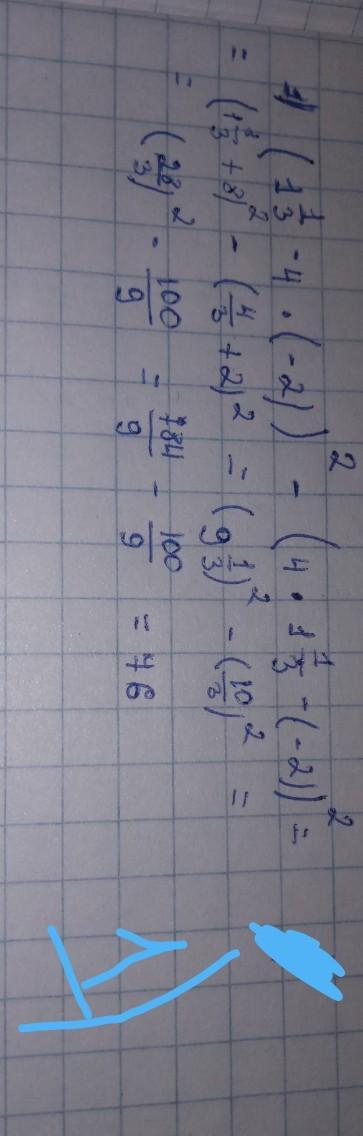 1) (1 1/3 - 4 · (-2))² - (4 · 1 1/3 - (-2))² =
= (1 1/3 + 8)² - (4/3 + 2)² = (9 1/3)² - (10/3)² =
= (28/3)² - 100/9 = 784/9 - 100/9 = 76